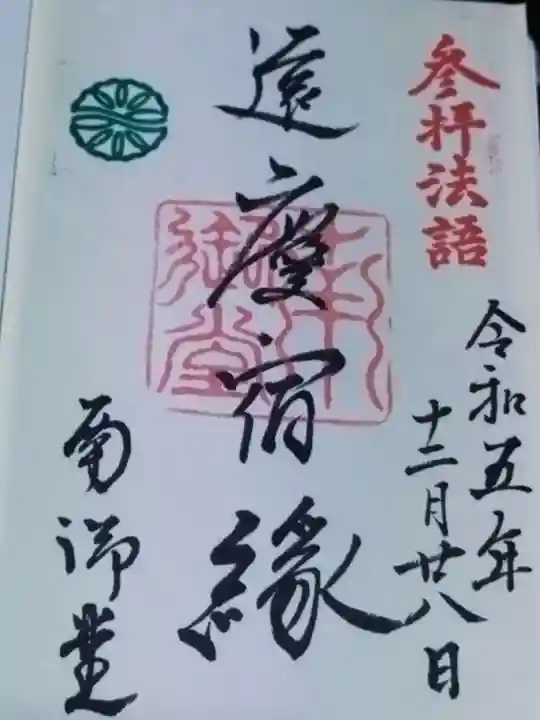 参拝法語
令和五年
十二月廿八日
遠慶宿縁
南御堂
南御堂